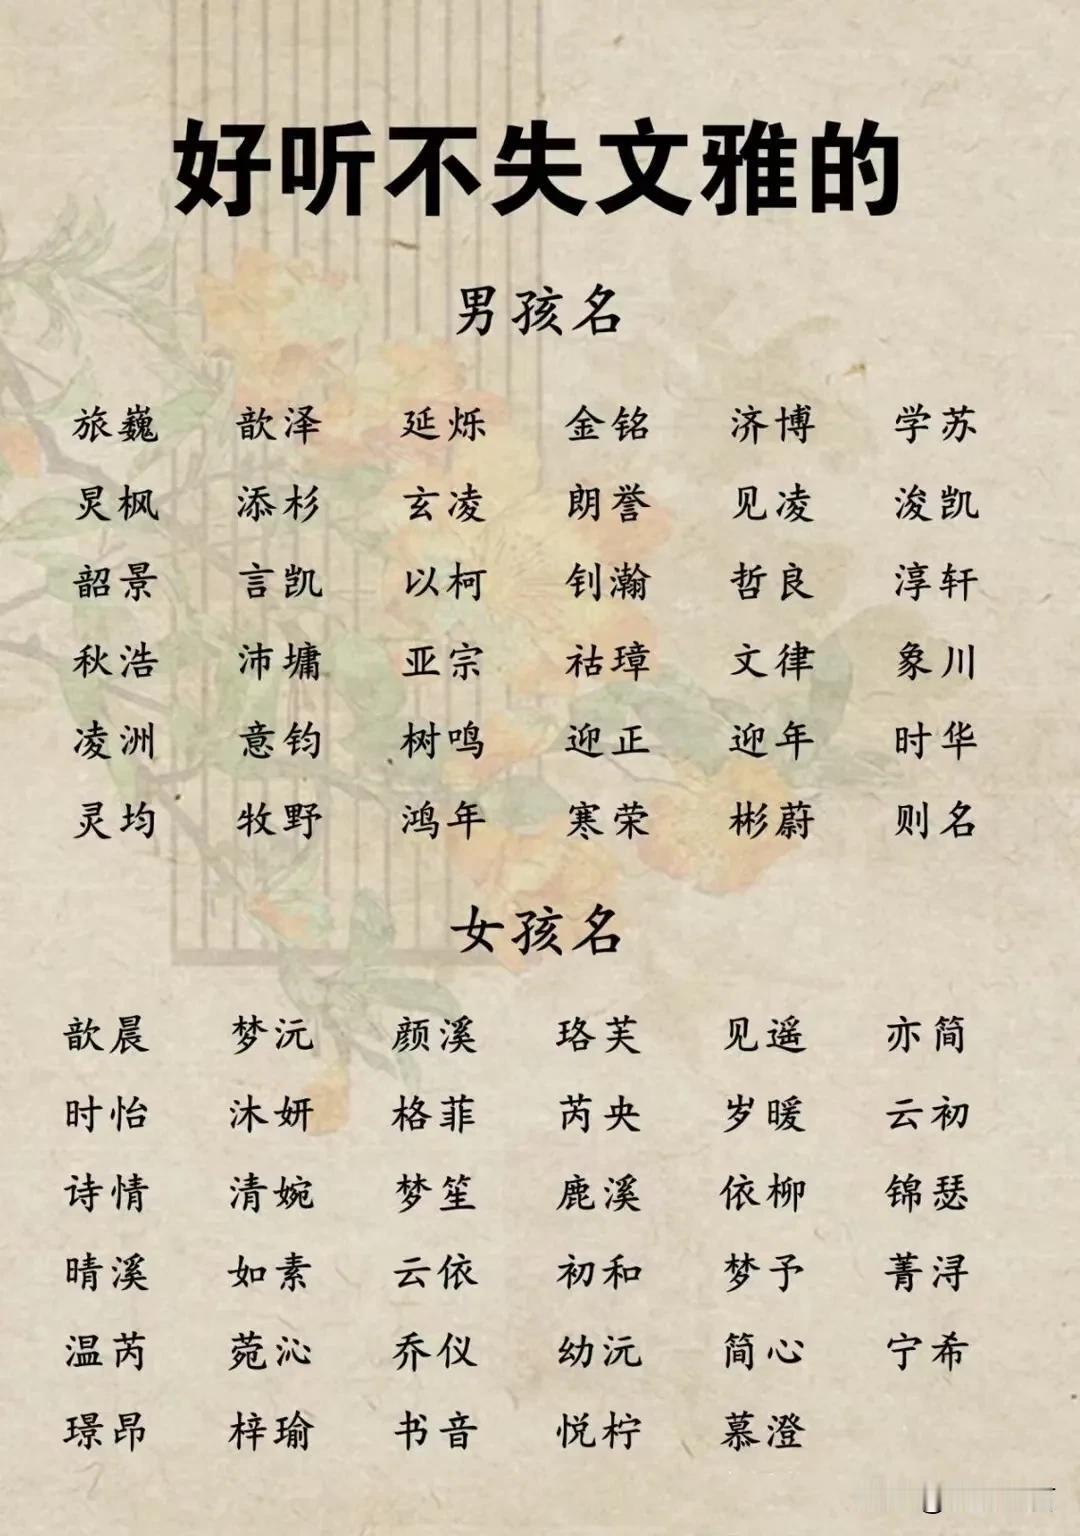 好听不失文雅的
男孩名
旅巍 歆泽 延烁 金铭 济博 学苏
炅枫 添杉 玄凌 朗誉 见凌 浚凯
韶景 言凯 以柯 钊瀚 哲良 淳轩
秋浩 沛墉 亚宗 祜璋 文律 象川
凌洲 意钧 树鸣 迎正 迎年 时华
灵均 牧野 鸿年 寒荣 彬蔚 则名
女孩名
歆晨 梦沅 颜溪 珞芙 见遥 亦简
时怡 沐妍 格菲 芮央 岁暖 云初
诗情 清婉 梦笙 鹿溪 依柳 锦瑟
晴溪 如素 云依 初和 梦予 菁浔
温芮 菀沁 乔仪 幼沅 简心 宁希
璟昂 梓瑜 书音 悦柠 慕澄